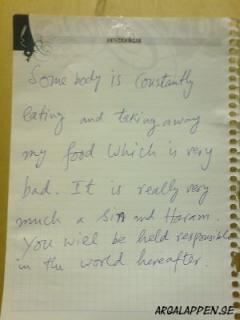 Some body is constantly
eating and taking away
my food which is very
bad. It is really very
much a Sin and Haram.
You will be held responsible
in the world hereafter.
ARGALAPPEN.SE